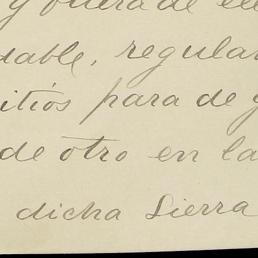 y fuera de ele
dable, regular
itios para de g
de otro en la
dicha Sierra